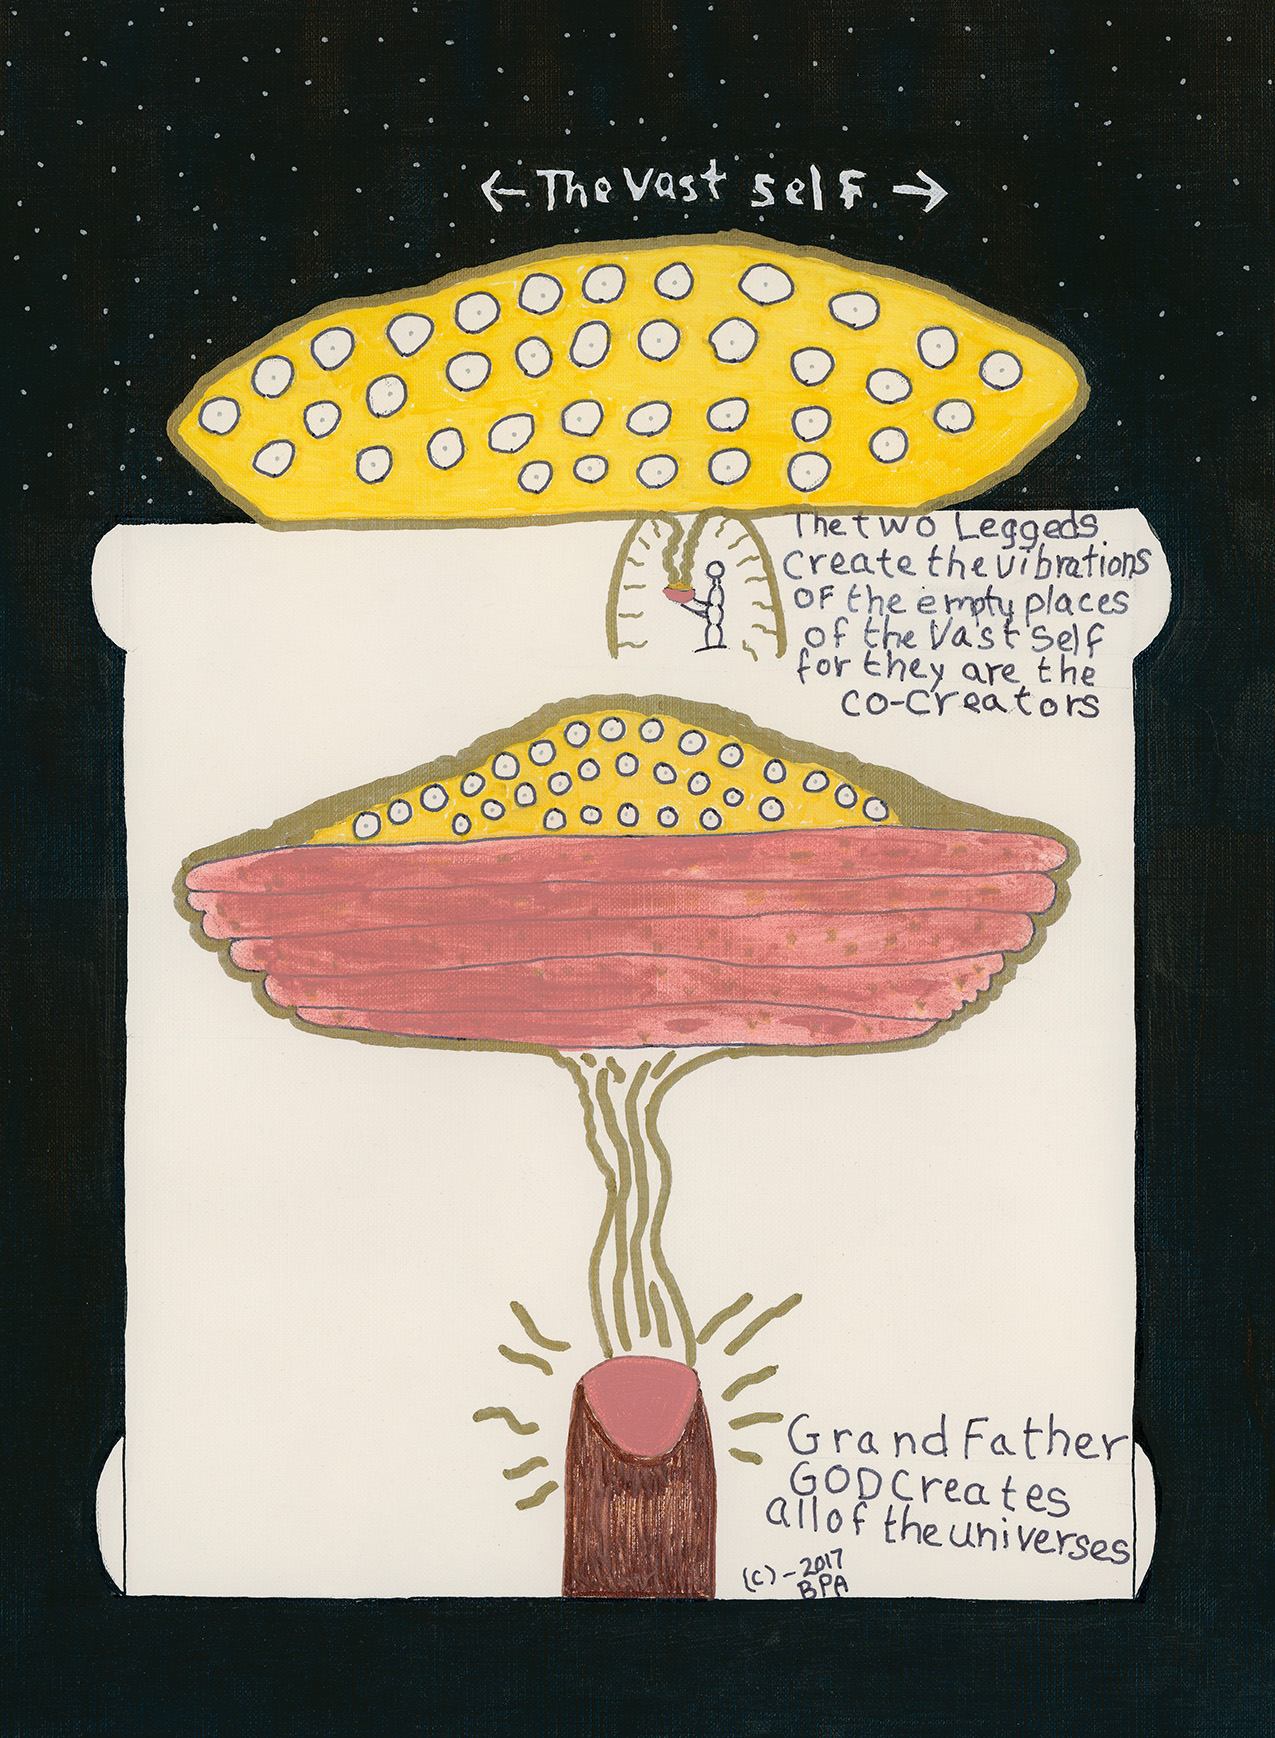 ← The Vast Self →
The two Leggeds
Create the vibrations
OF the empty places
of the Vast Self
for they are the
CO-Creators
Grand Father
GOD Creates
all of the universes
(C) - 2017
BPA